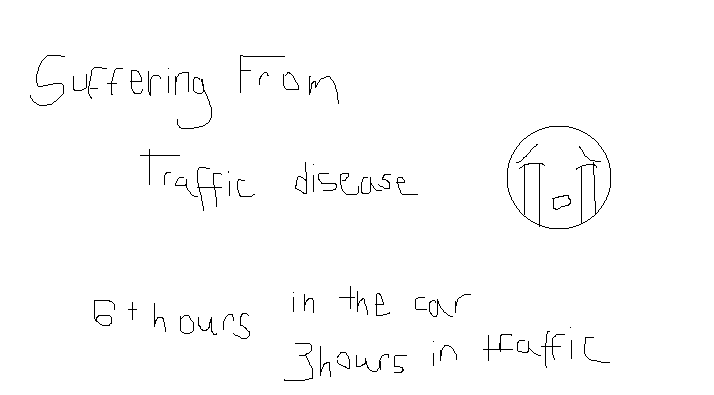 Suffering From
Traffic disease
6+ hours in the car
3hours in traffic